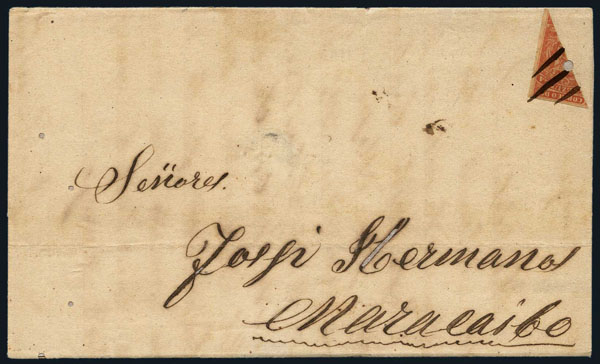 Señores.
Jossi Hermanos
Maracaibo